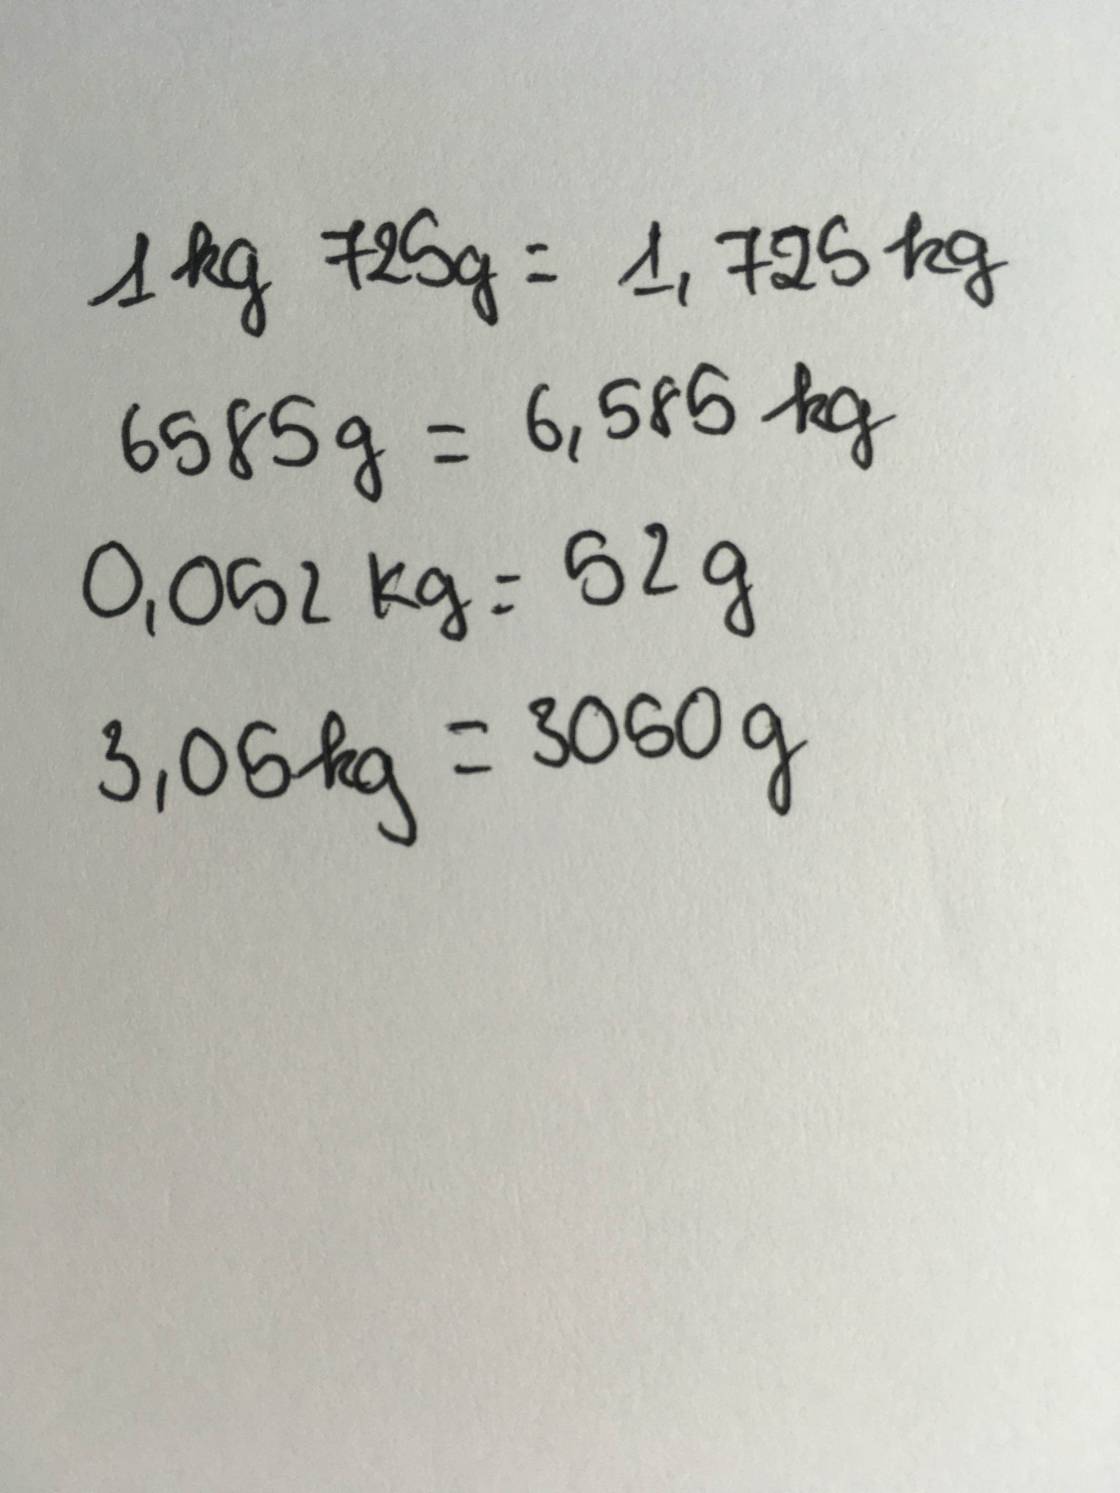 1 kg 725g = 1,725 kg
6585g = 6,585 kg
0,052 kg = 52 g
3,05 kg = 3050 g